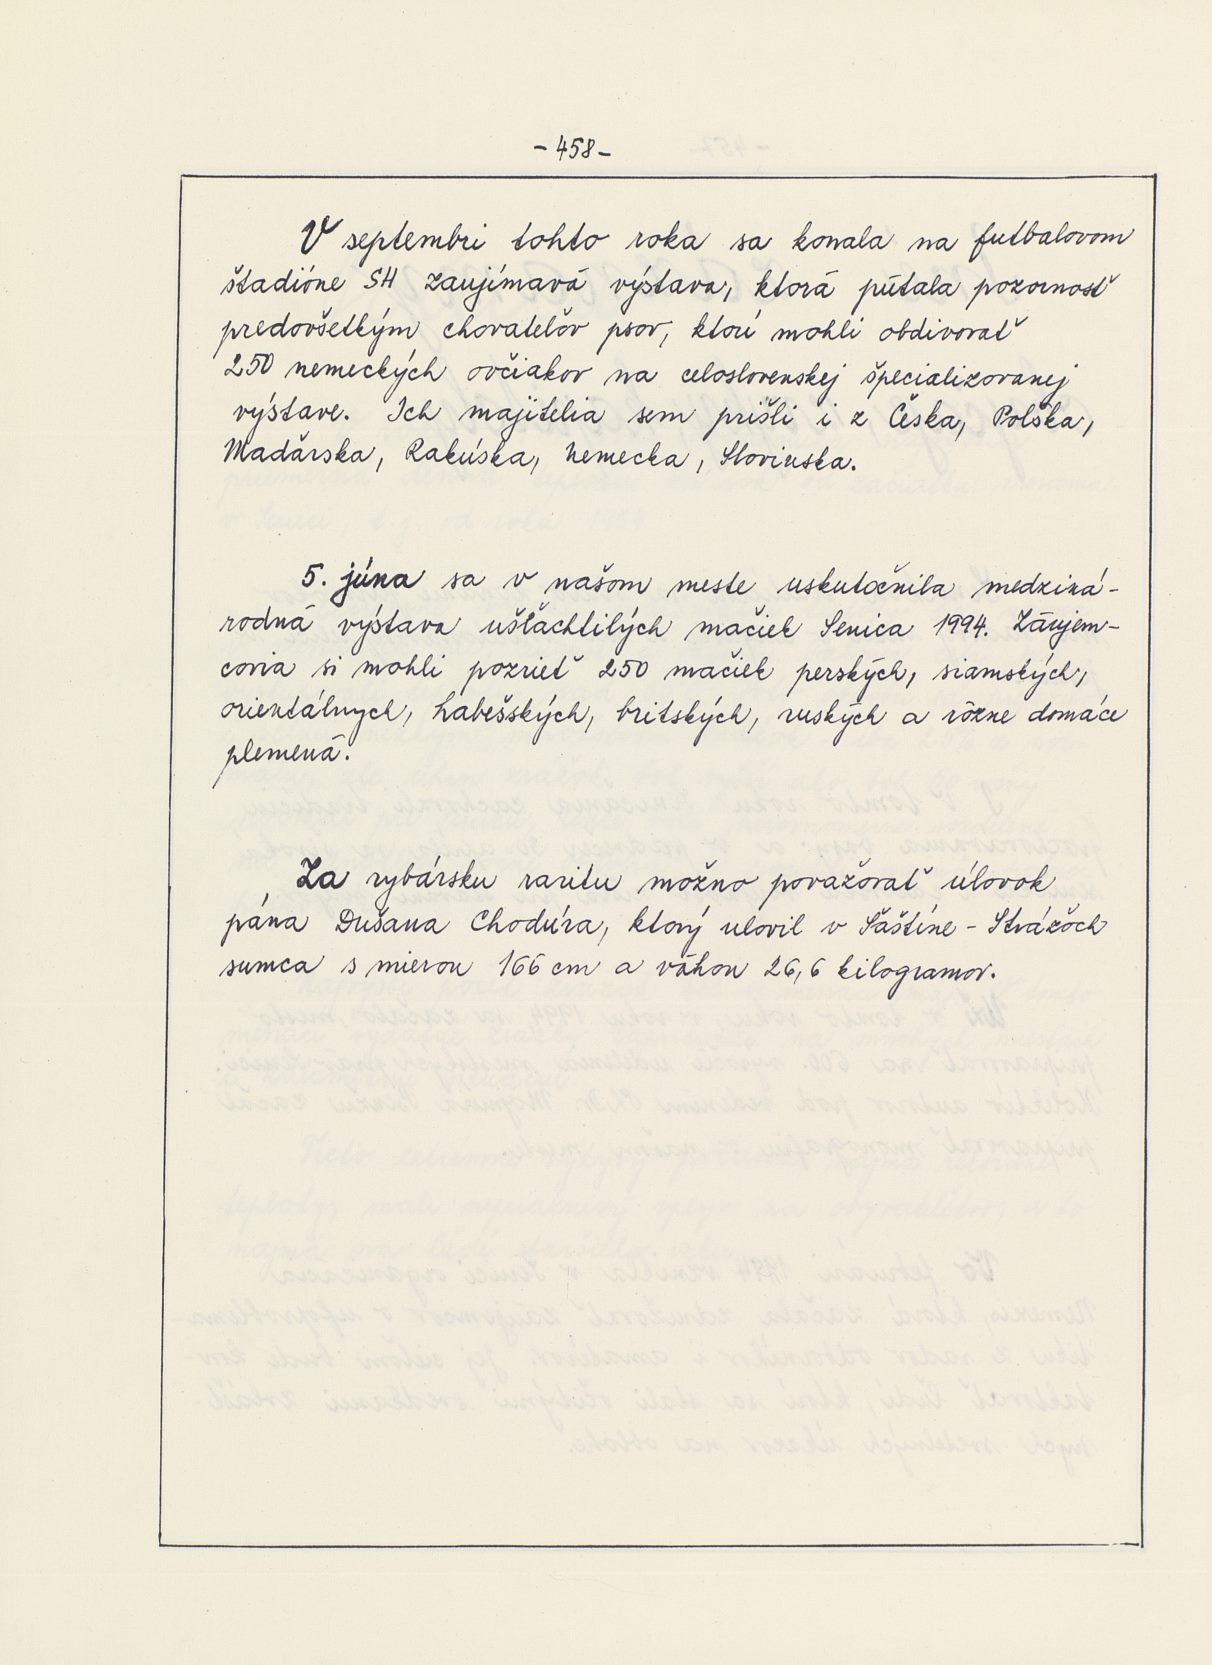 - 458 -
V septembri tohto roka sa konala na futbalovom
štadióne SH zaujímavá výstava, ktorá pútala pozornosť
predovšetkým chovateľov psov, ktorí mohli obdivovať
250 nemeckých ovčiakov na celoslovenskej špecializovanej
výstave. Ich majitelia sem prišli i z Česka, Poľska,
Maďarska, Rakúska, Nemecka, Slovinska.
5. júna sa v našom meste uskutočnila medziná-
rodná výstava ušľachtilých mačiek Senica 1994. Záujem-
covia si mohli pozrieť 250 mačiek perských, siamských,
orientálnych, habešských, britských, ruských a rôzne domáce
plemená.
Za rybársku raritu možno považovať úlovok
pána Dušana Chodúra, ktorý ulovil v Šaštíne - Strážoch
sumca s mierou 166 cm a váhou 26,6 kilogramov.